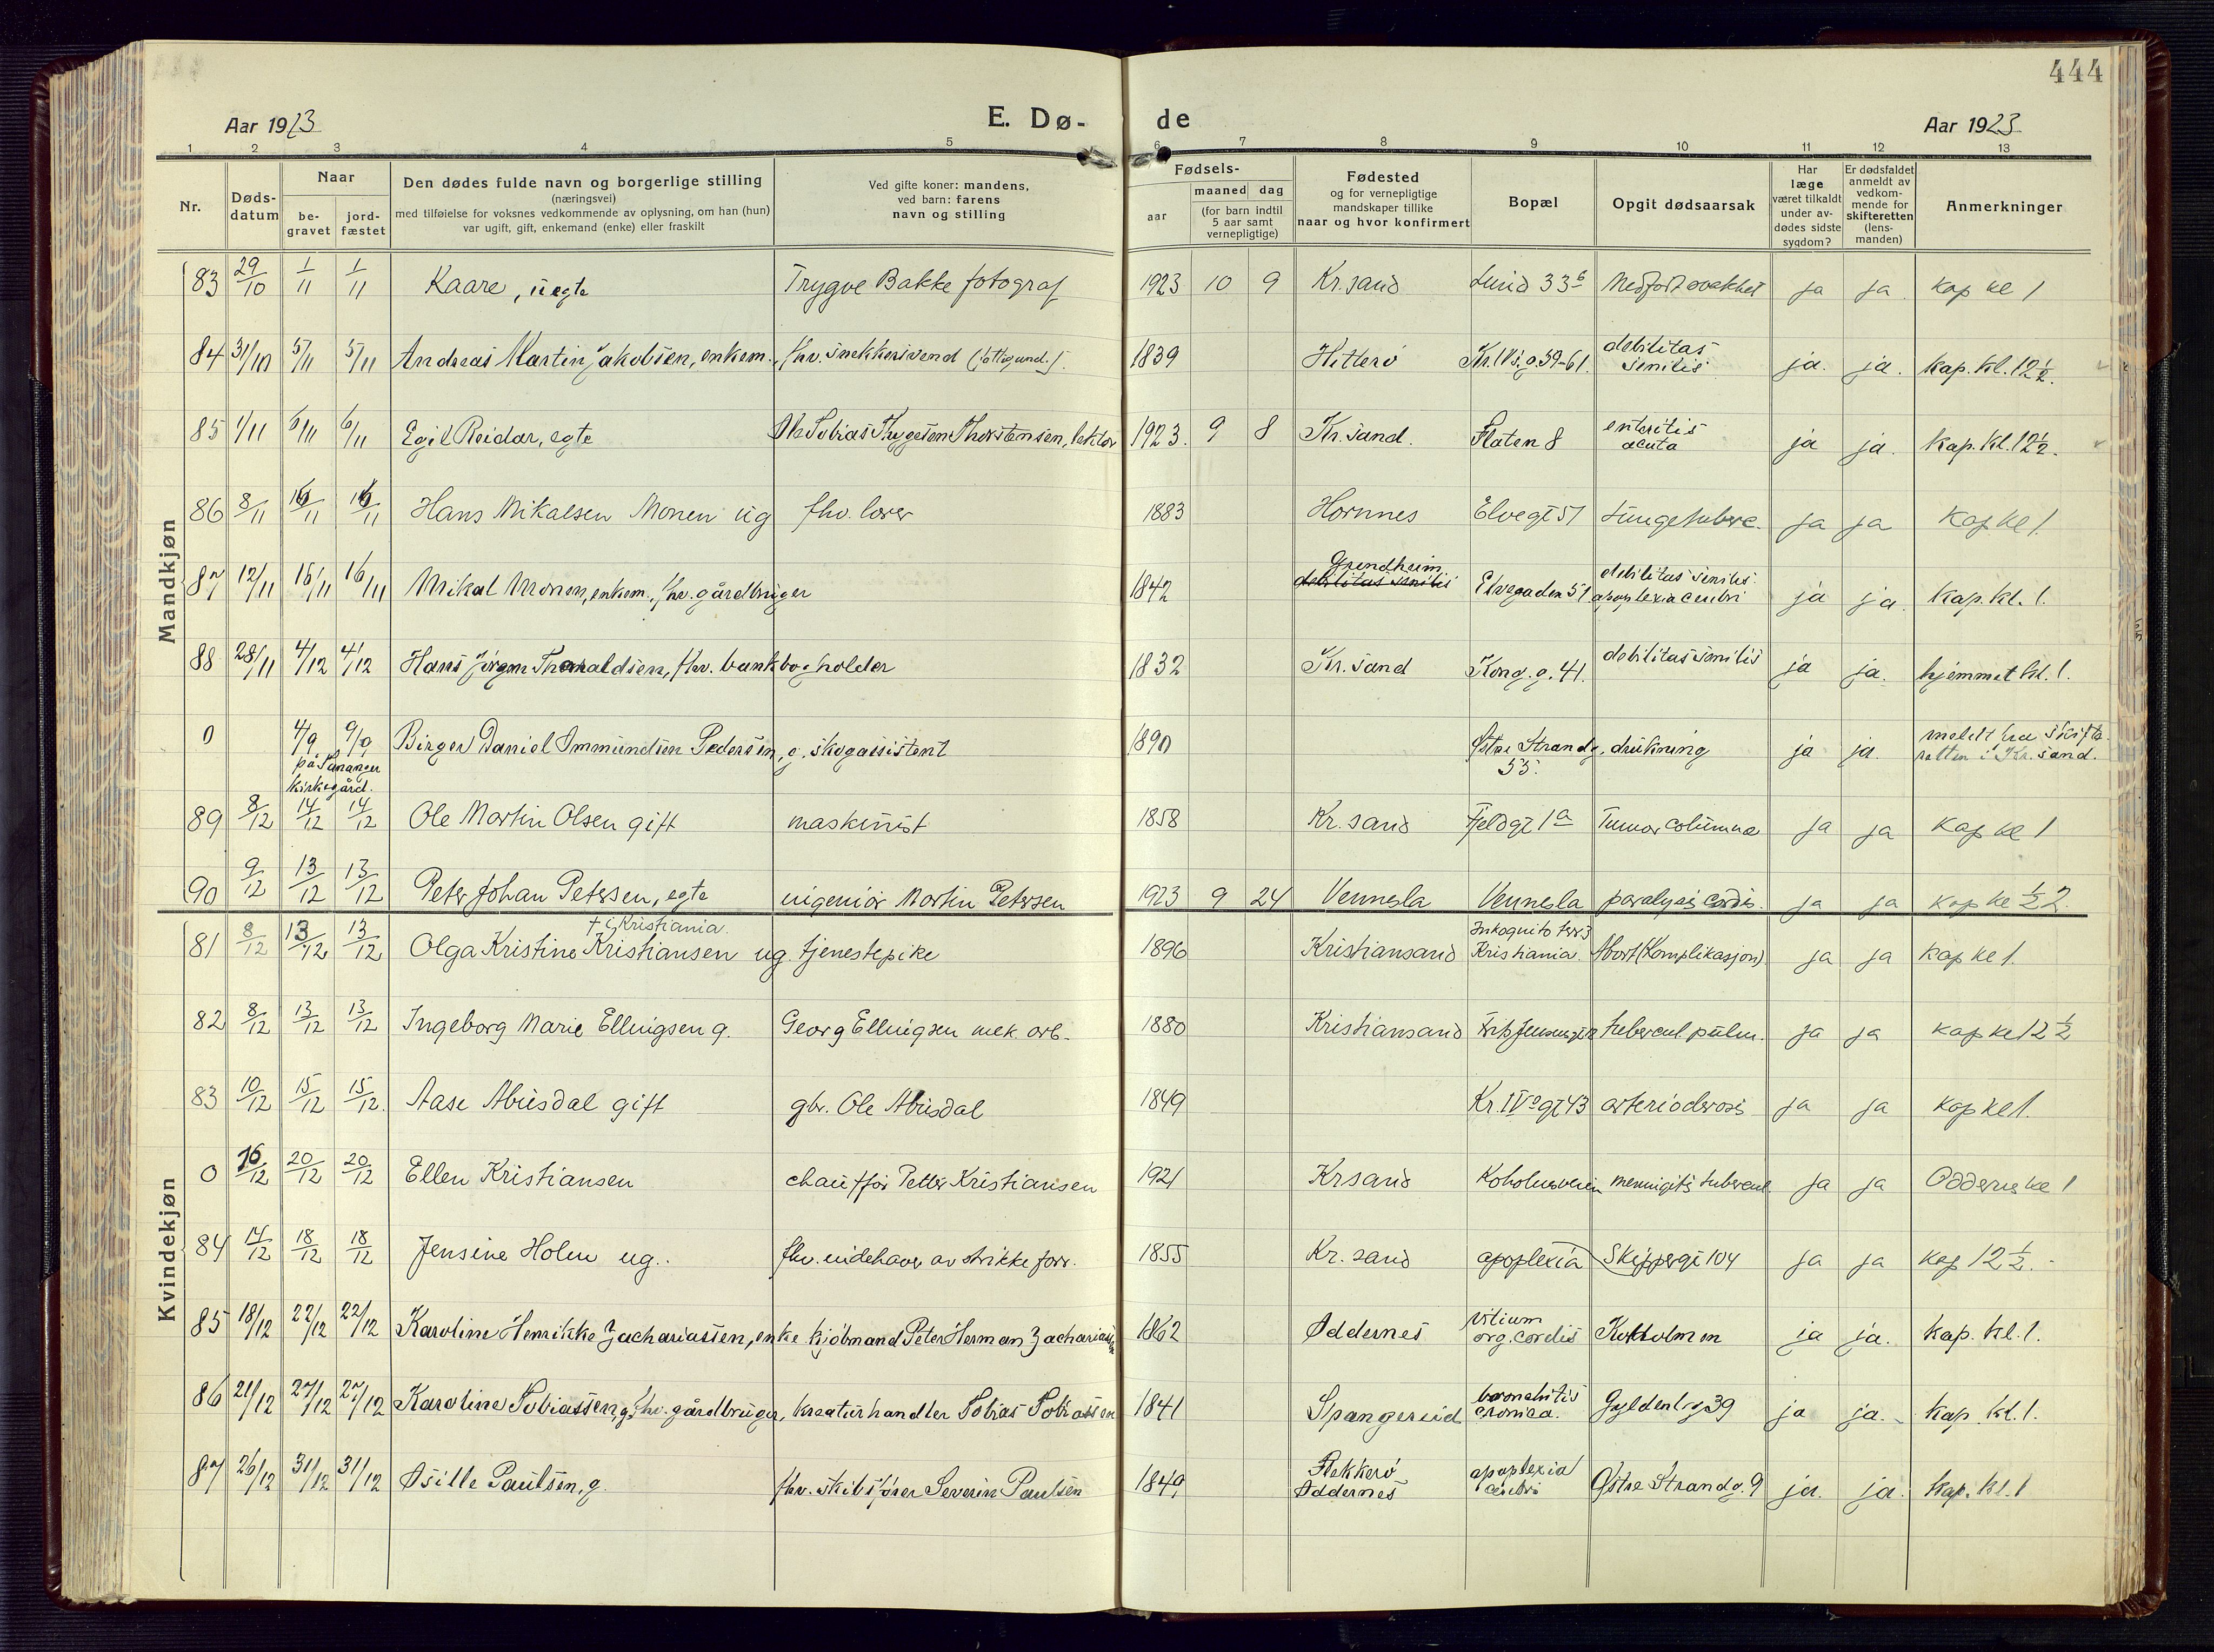 444
Aar 1923
E. Dø-
de
Aar 1923
1 2 3 4 5 6 7 8 9 10 11 12 13
Nr.
Døds-
datum
Naar
be-
gravet
jord-
fæstet
Den dødes fulde navn og borgerlige stilling
(næringsvei)
med tilføielse for voksnes vedkommende av oplysning, om han (hun)
var ugift, gift, enkemand (enke) eller fraskilt
Ved gifte koner: mandens,
ved barn: farens
navn og stilling
Fødsels-
aar
maaned dag
(for barn indtil
5 aar samt
vernepligtige)
Fødested
og for vernepligtige
mandskaper tillike
naar og hvor konfirmert
Bopæl
Opgit dødsaarsak
Har
læge
været tilkaldt
under av-
dødes sidste
sygdom?
Er dødsfaldet
anmeldt av
vedkom-
mende for
skifteretten
(lens-
manden)
Anmerkninger
Mandkjøn
83 29/10 1/11 1/11 Kaare, uegte Trygve Bakke fotograf 1923 10 9 Kr.sand Lund 33 b Medfødt svakhet ja ja. kap kl 1
84 31/10 5/11 5/11 Andreas Martin Jakobsen, enkem., fhv. snekkersvend 1839 Hitterø Kr. IVs. g. 59-61. debilitas senilis ja. ja. kap. kl. 12½.
85 1/11 6/11 6/11 Egil Reidar, egte Ole Tobias Thygesen Thorstensen, lektor 1923. 9 8 Kr.sand. Flaten 8 enteritis acuta ja ja. kap. kl. 12½.
86 8/11 16/11 16/11 Hans Mikalsen Monen ug fhv. lærer 1883 Hornnes Elvegt 51 Lungetuberc. ja ja Kap kl 1.
87 12/11 16/11 16/11 Mikal Monen, enkem., fhv. gårdbruger 1842 Grendheim debilitas senilis Elvegaden 51 debilitas senilis. apoplexia cerebri ja ja. kap. kl. 1.
88 28/11 4/12 4/12 Hans Jørgen Thoraldsen, fhv. bankbogholder 1832 Kr.sand Kong. g. 41. debilitas senilis ja ja. hjemmet kl. 1.
0 4/9 9/9 på Vananger kirkegård. Birger Daniel Ommundsen Pedersen, g. skogassistent 1890 Østre Strandg. 55. drukning ja ja. meldt fra skifte-
retten i Kr.sand.
89 8/12 14/12 14/12 Ole Martin Olsen gift maskinist 1858 Kr.sand Fjeldgt 1a Tumor columnae ja ja kap kl 1
90 9/12 13/12 13/12 Peter Johan Petersen, egte ingeniør Martin Petersen 1923 9 24 Vennesla Vennesla paralysis cordis. ja ja kap kl ½ 2
Kvindekjøn
† i Kristiania.
81 8/12 13/12 13/12 Olga Kristine Kristiansen ug. tjenestepike 1896 Kristiansand Inkognito terr 3 Kristiania. Abort (Komplikasjon) ja ja kap kl 1.
82 8/12 13/12 13/12 Ingeborg Marie Ellingsen g. Georg Ellingsen mek. arb. 1880 Kristiansand tubercul. pulm. ja ja kap kl 12½
83 10/12 15/12 15/12. Aase Abusdal gift gbr. Ole Abusdal 1849 Kr. IVs gt 43 arteriosclerosis ja ja kap kl 1.
0 16/12 20/12 20/12 Ellen Kristiansen chauffør Petter Kristiansen 1921 Krsand Koholmveien meningitis tubercul ja ja Oddernes kl 1
84 14/12 18/12 18/12 Jensine Holm ug. fhv. indehaver av strikkeforr. 1855 Kr.sand apoplexia Skippergt 104 ja ja kap 12½.
85 18/12 22/12 22/12 Karoline Henrikke Zachariassen, enke kjøbmand Peter Herman Zachariassen 1862 Oddernes vitium org. cordis Kolholmen ja ja. kap. kl. 1.
86 21/12 27/12 27/12 Karoline Tobiassen, g. fhv. gårdbruger, kreaturhandler Tobias Tobiassen 1841 Spangereid bronchitis cronica. Gyldenl. g 39 ja ja. kap. kl. 1.
87 26/12 31/12 31/12 Osille Paulsen, g. fhv. skibsfører Severin Paulsen 1849 Flekkerø Oddernes apoplexia cerebri Østre Strandg. 9 ja. ja. kap. kl. 1